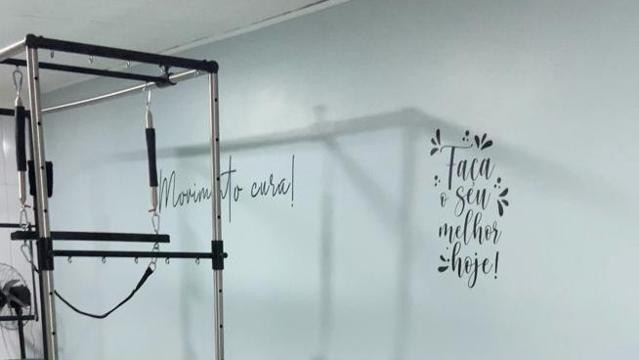 Movimento cura!
Faça
o seu
melhor
hoje!